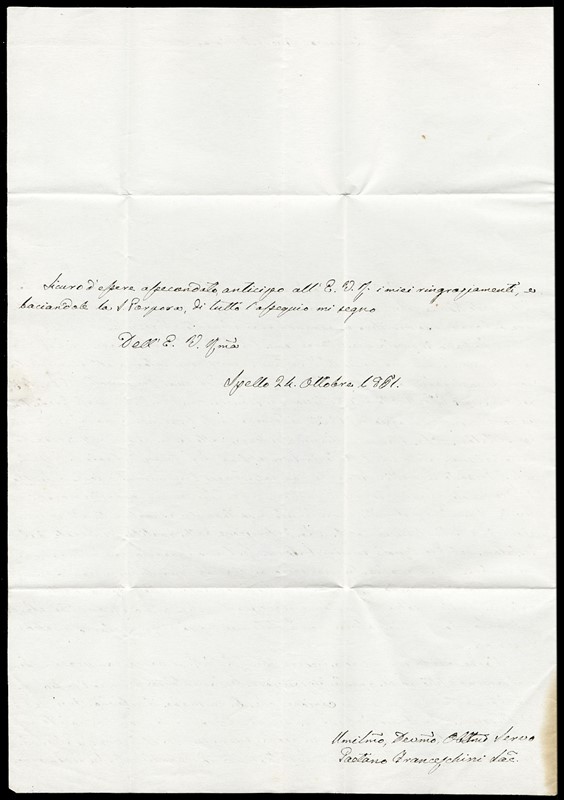 Sicuro d'essere assecondato, anticipo all'E. V. R. i miei ringraziamenti, e
baciandole la S. Porpora, di tutto l'ossequio mi segno
Dell'E. V. Rma
Spello 24. Ottobre 1861.
Umilmo, Devmo, Obbmo Servo
Gaetano Franceschini Sac.